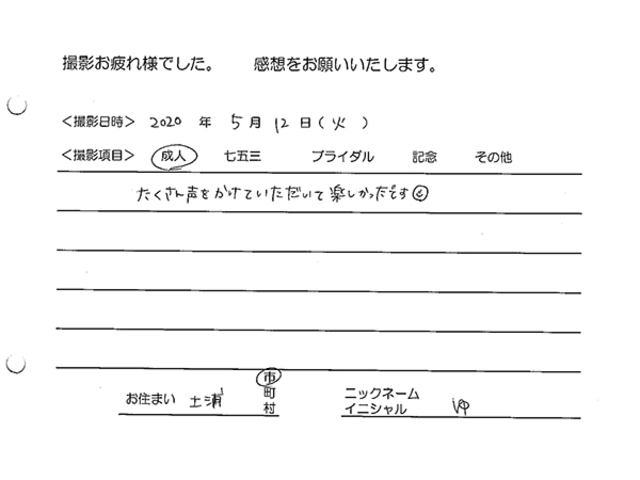 撮影お疲れ様でした。 感想をお願いいたします。
<撮影日時> 2020 年 5 月 12 日(火)
<撮影項目> 成人 七五三 ブライダル 記念 その他
たくさん声をかけていただいて楽しかったです
お住まい 土浦 市 町 村
ニックネーム イニシャル ゆ